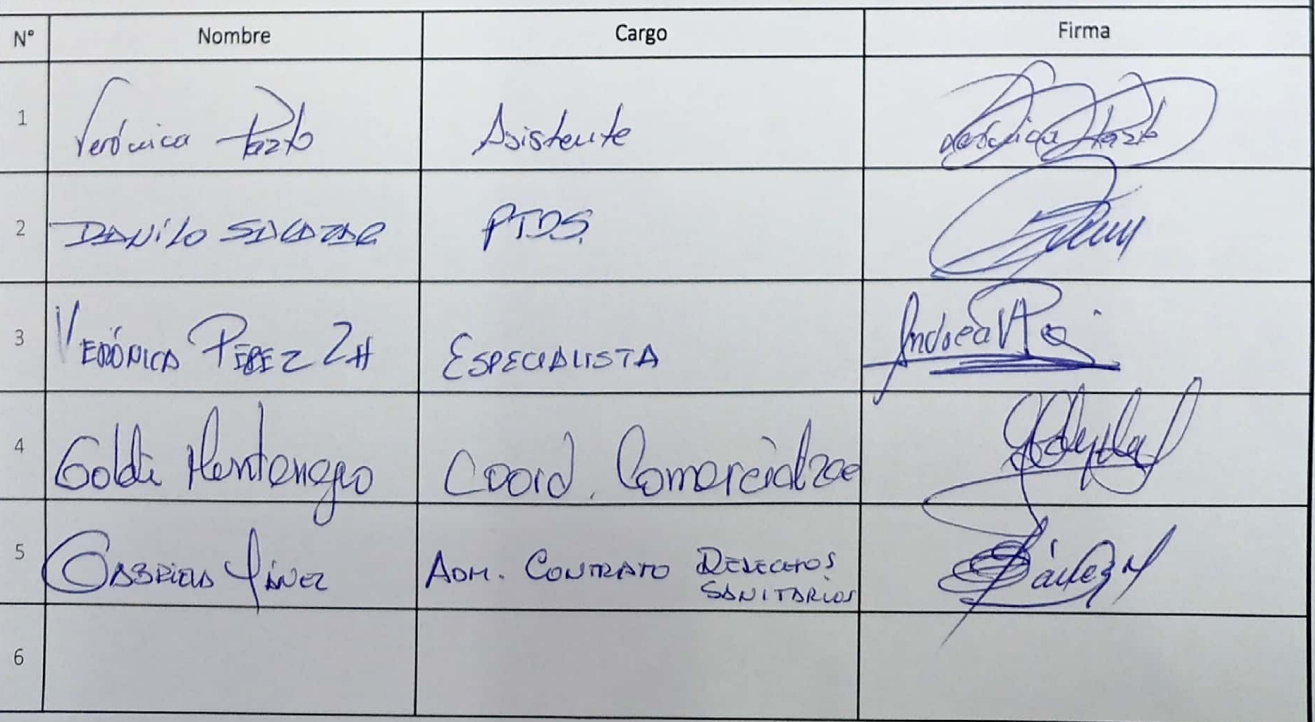 N° Nombre Cargo Firma
1 Verónica Pazto Asistente Verónica Pazto
2 DANilo SALAZAR PTDS.
3 VERÓNICA PÉREZ ZH ESPECIALISTA Andrea
4 Goldi Montenegro Coord. Comercialzac
5 GABRIELA YÁNEZ ADM. CONTRATO DESECHOS
SANITARIOS
6